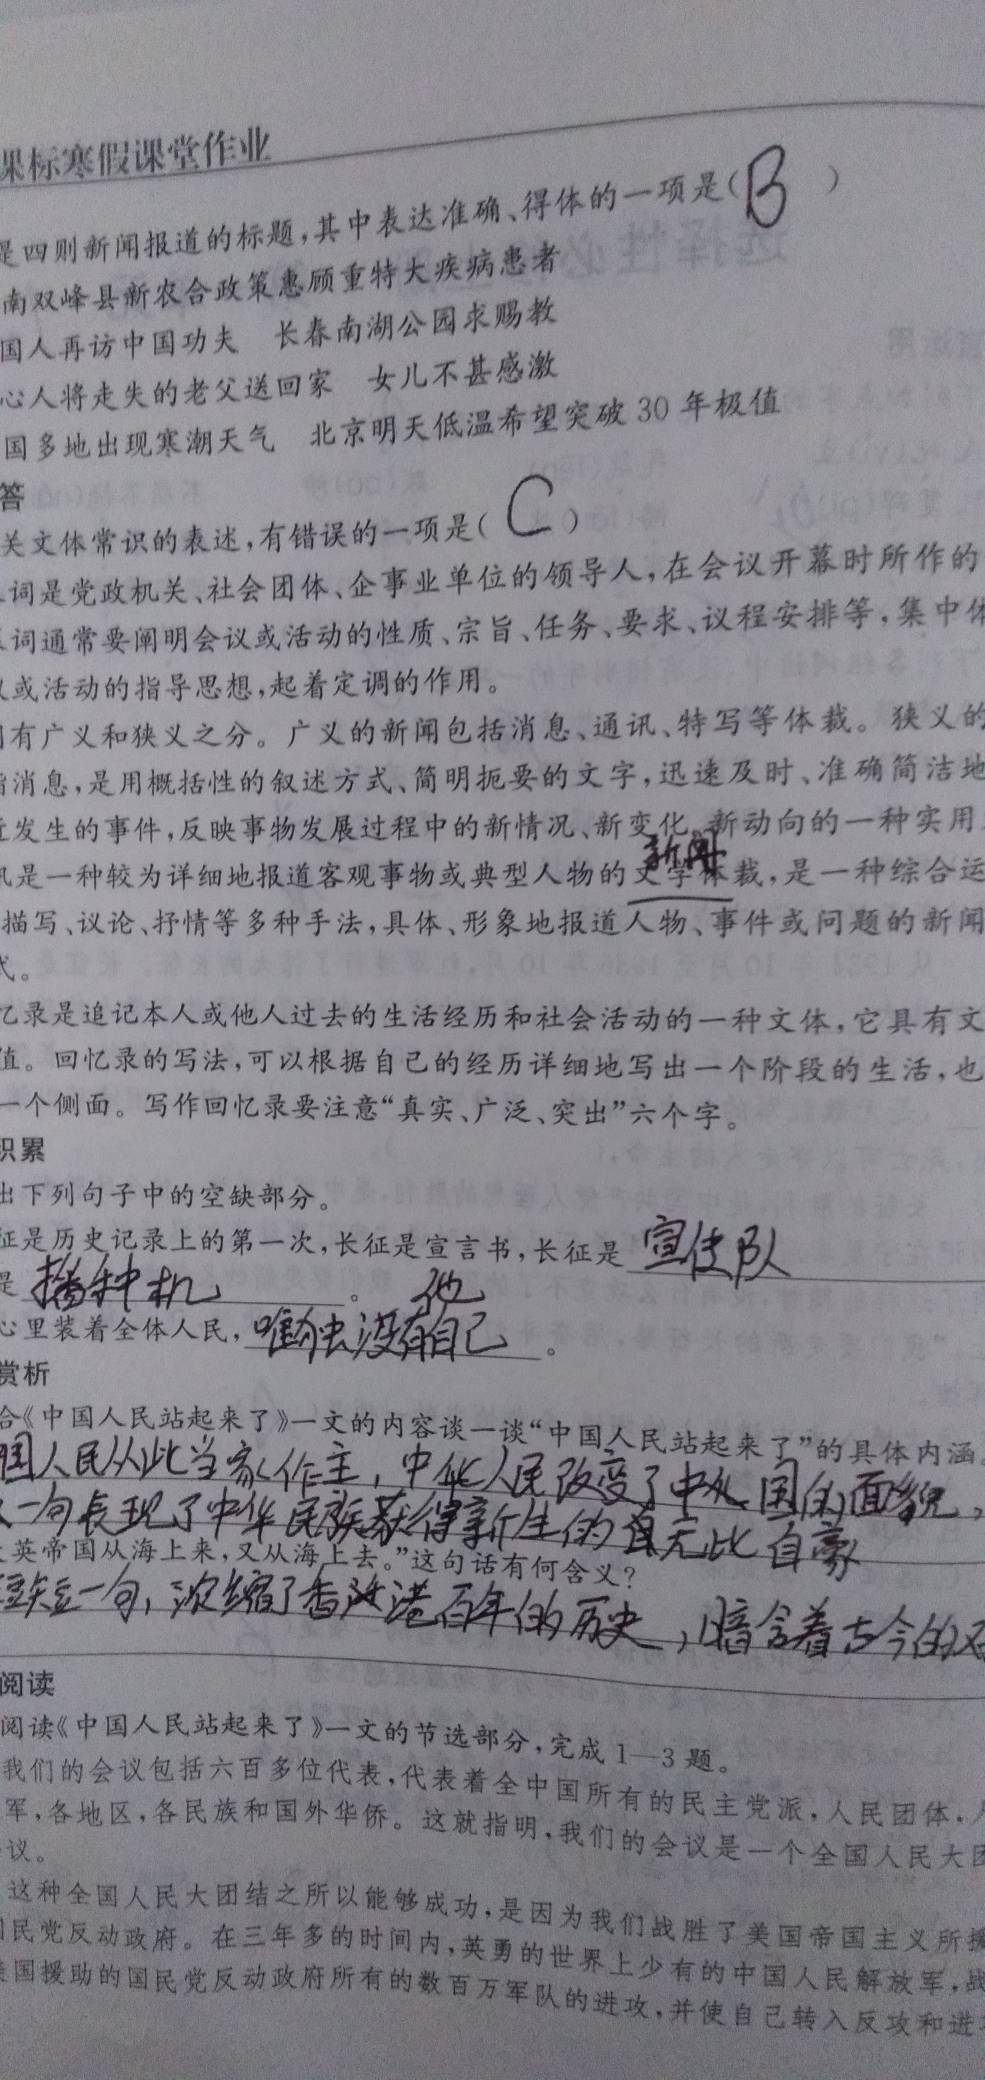 课标寒假课堂作业
是四则新闻报道的标题,其中表达准确、得体的一项是( B )
南双峰县新农合政策惠顾重特大疾病患者
国人再访中国功夫 长春南湖公园求赐教
心人将走失的老父送回家 女儿不甚感激
国多地出现寒潮天气 北京明天低温希望突破30年极值
答
关文体常识的表述,有错误的一项是( C )
词是党政机关、社会团体、企事业单位的领导人,在会议开幕时所作的
词通常要阐明会议或活动的性质、宗旨、任务、要求、议程安排等,集中体
或活动的指导思想,起着定调的作用。
有广义和狭义之分。广义的新闻包括消息、通讯、特写等体裁。狭义的
指消息,是用概括性的叙述方式、简明扼要的文字,迅速及时、准确简洁地
近发生的事件,反映事物发展过程中的新情况、新变化、新动向的一种实用
新闻
讯是一种较为详细地报道客观事物或典型人物的文学体裁,是一种综合运
描写、议论、抒情等多种手法,具体、形象地报道人物、事件或问题的新闻
式。
忆录是追记本人或他人过去的生活经历和社会活动的一种文体,它具有文
值。回忆录的写法,可以根据自己的经历详细地写出一个阶段的生活,也
一个侧面。写作回忆录要注意“真实、广泛、突出”六个字。
积累
出下列句子中的空缺部分。
征是历史记录上的第一次,长征是宣言书,长征是 宣传队
是 播种机 。 他
心里装着全体人民, 唯独没有自己 。
赏析
合《中国人民站起来了》一文的内容谈一谈“中国人民站起来了”的具体内涵。
国人民从此当家作主,中华人民改变了中国的面貌,
一句表现了中华民族获得新生的无比自豪
英帝国从海上来,又从海上去。”这句话有何含义?
短短一句,浓缩了香港百年的历史,暗含着古今的
阅读
阅读《中国人民站起来了》一文的节选部分,完成1—3题。
我们的会议包括六百多位代表,代表着全中国所有的民主党派,人民团体,人
军,各地区,各民族和国外华侨。这就指明,我们的会议是一个全国人民大团
议。
这种全国人民大团结之所以能够成功,是因为我们战胜了美国帝国主义所援
国民党反动政府。在三年多的时间内,英勇的世界上少有的中国人民解放军,战
美国援助的国民党反动政府所有的数百万军队的进攻,并使自己转入反攻和进